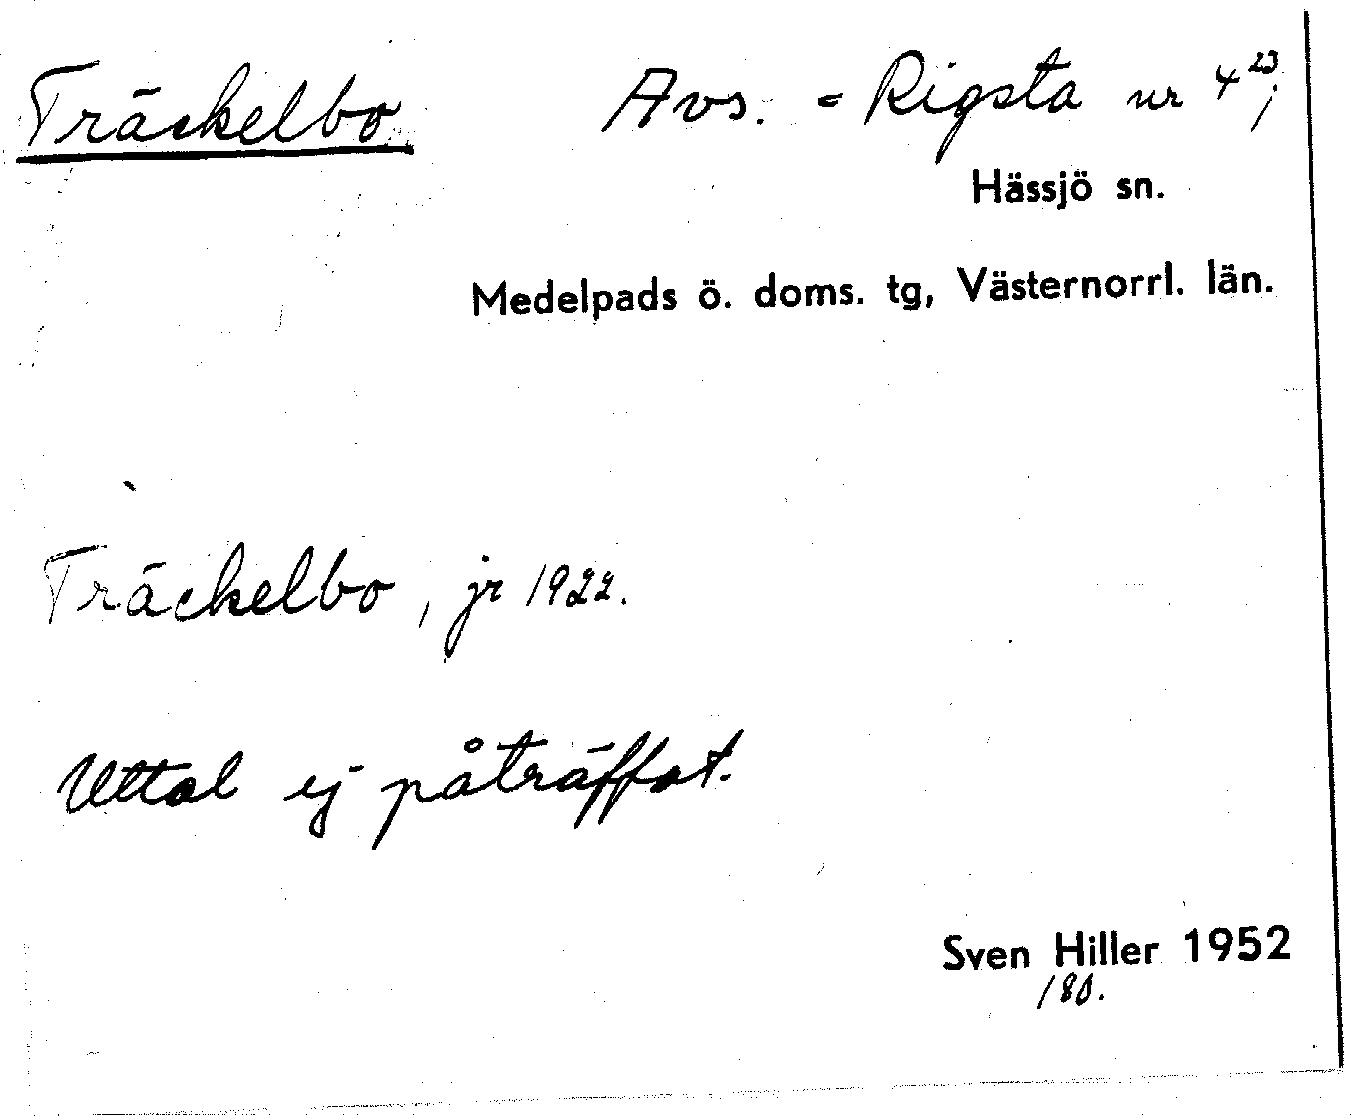 Träckelbo Avs. = Rigsta nr 4²³;
Hässjö sn.
Medelpads ö. doms. tg, Västernorrl. län.
Träckelbo, jr 1922.
Uttal ej påträffat.
Sven Hiller 1952
180.